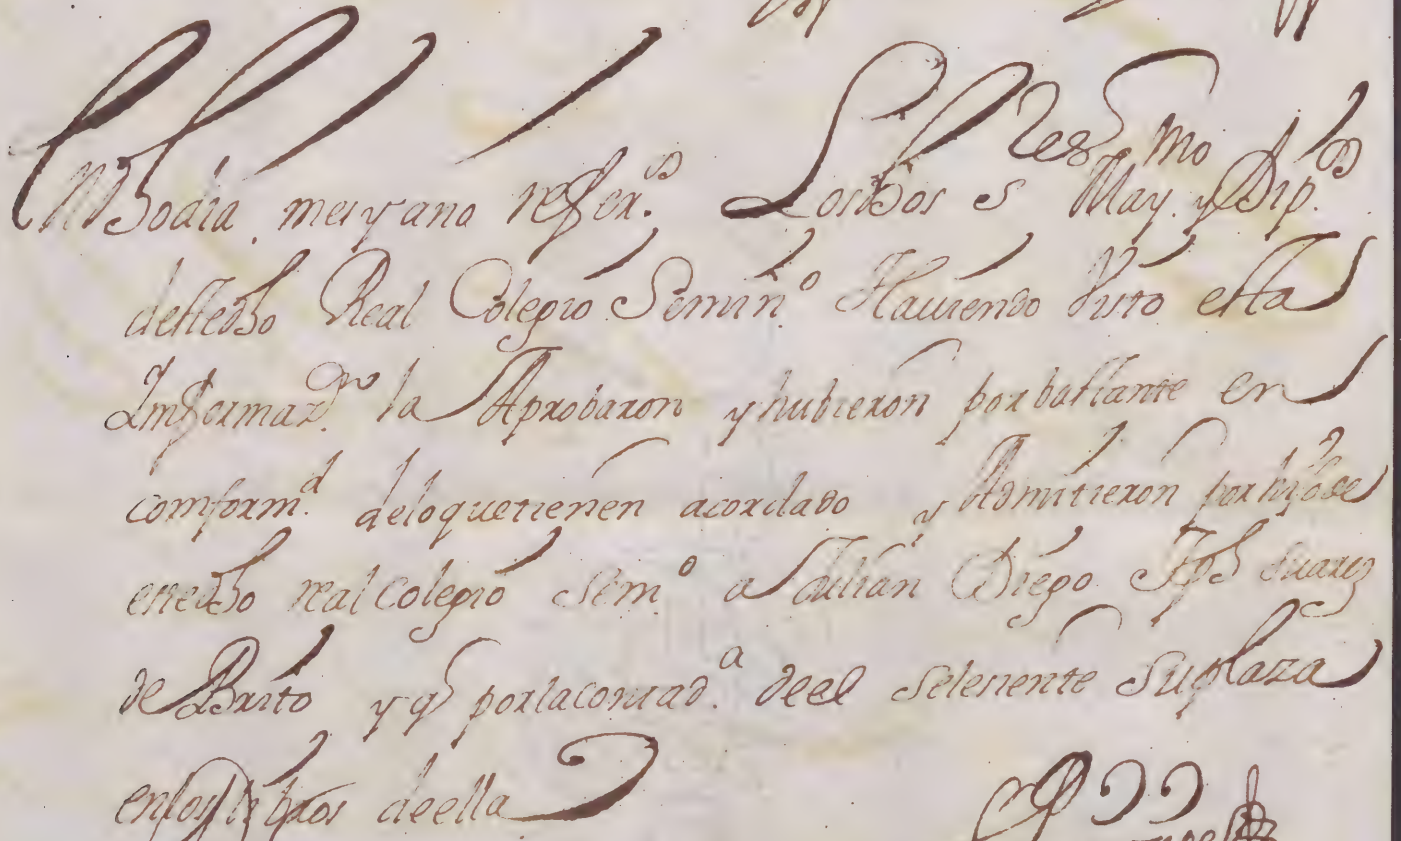 En dho dia mes y ano refer.do Los dhos Sres May.mo y Dip.dos
deste dho Real Colegio Semin.o Haviendo visto esta
Imformaz.on la Aprobaron y hubieron por bastante en
comform.d de lo que tienen acordado y Admitieron por hijo de
este dho real colegio Sem.o a Julian Diego Jph suarez
de Brito y q por la contad.a de el se le siente su plaza
en los libros de ella